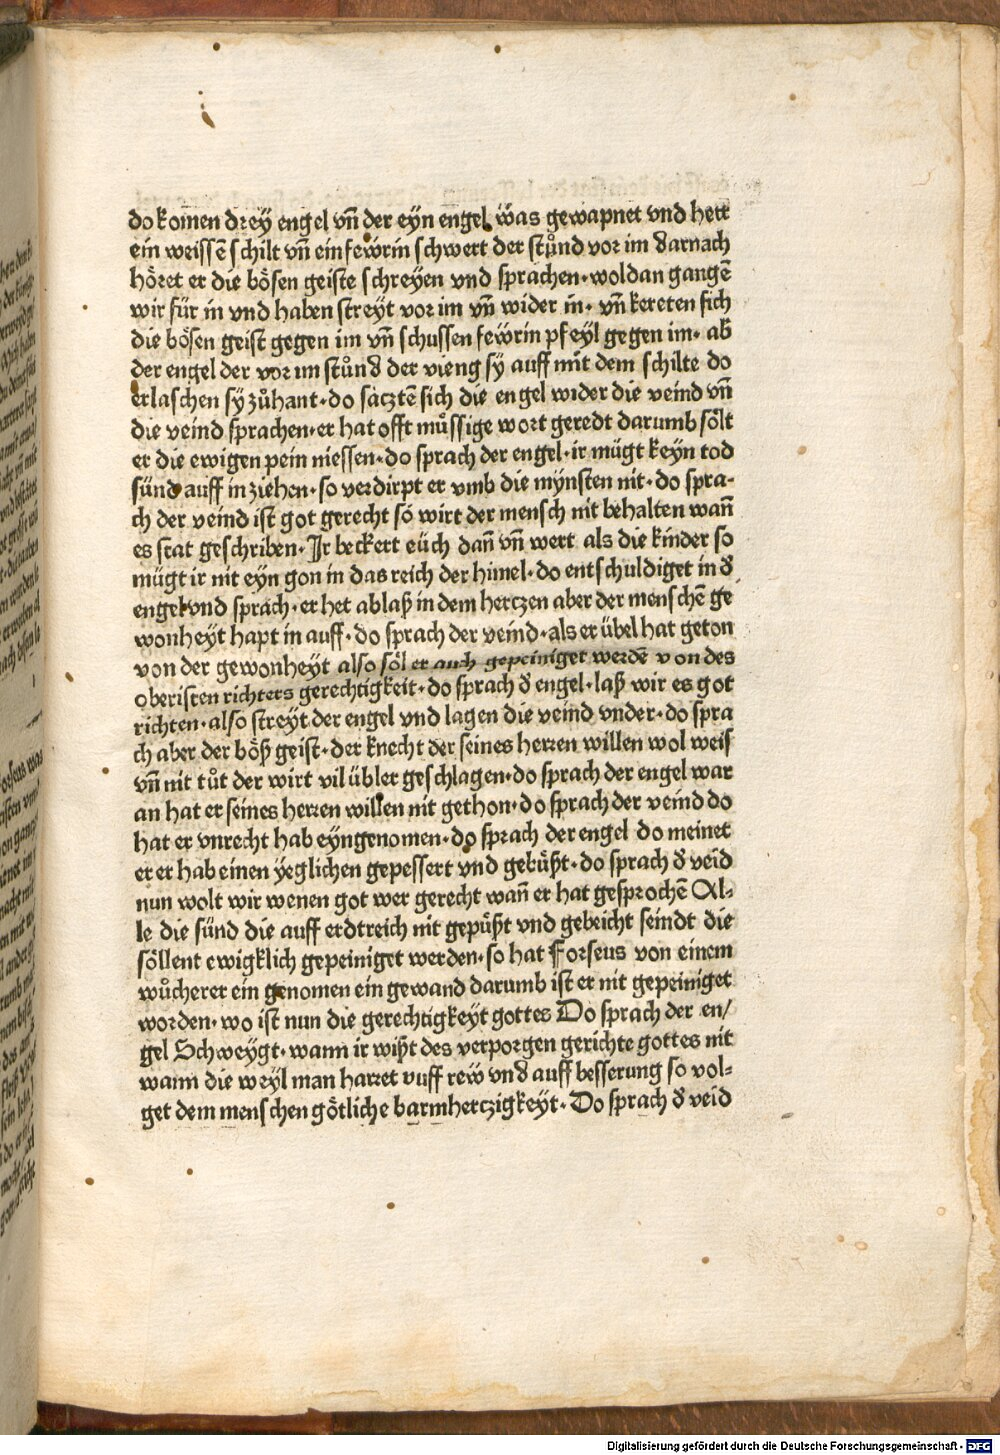 do komen drey engel vn̄ der eyn engel was gewapnet vnd hett
ein weissē schilt vn̄ ein fewrin schwert der stůnd vor im darnach
höret er die bösen geiste schreyen vnd sprachen · woldan gangē
wir für in vnd haben streyt vor im vn̄ wider in · vn̄ kereten sich
die bösen geist gegen im vn̄ schussen fewrin pfeyl gegen im · ab̄
der engel der vor im stůnd der vieng sy auff mit dem schilte do
erlaschen sy zůhant · do sacztē sich die engel wider die veind vn̄
die veind sprachen · er hat offt müssige wort geredt darumb sölt
er die ewigen pein niessen · do sprach der engel · ir mügt keyn tod
sünd auff in ziehen · so verdirpt er vmb die mynsten nit · do spra-
ch der veind ist got gerecht so wirt der mensch nit behalten wan̄
es stat geschriben · Ir beckert eüch dan̄ vn̄ wert als die kinder so
mügt ir nit eyn gon in das reich der himel · do entschuldiget in d̄
engel vnd sprach · er het ablaß in dem herczen aber der menschē ge
wonheyt hapt in auff · do sprach der veind · als er übel hat geton
von der gewonheyt also söl er auch gepeiniget werdē von des
oberisten richters gerechtigkeit · do sprach d̄ engel · laß wir es got
richten · also streyt der engel vnd lagen die veind vnder · do spra
ch aber der böß geist · der knecht der seines herren willen wol weis
vn̄ nit tůt der wirt vil übler geschlagen · do sprach der engel war
an hat er seines herren willen nit gethon · do sprach der veind do
hat er vnrecht hab eyngenomen · do sprach der engel do meinet
er er hab einen yeglichen gepessert vnd gebüßt · do sprach d̄ veid
nun wolt wir wenen got wer gerecht wan̄ er hat gesprochē Al-
le die sünd die auff erdtreich nit gepüßt vnd gebeicht seindt die
söllent ewigklich gepeiniget werden · so hat Forseus von einem
wůcherer ein genomen ein gewand darumb ist er nit gepeiniget
worden · wo ist nun die gerechtigkeyt gottes Do sprach der en/
gel Schweygt · wann ir wißt des verporgen gerichte gottes nit
wann die weyl man harret vuff rew vnd auff besserung so vol-
get dem menschen götliche barmherczigkeyt · Do sprach d̄ veid
Digitalisierung gefördert durch die Deutsche Forschungsgemeinschaft - DFG